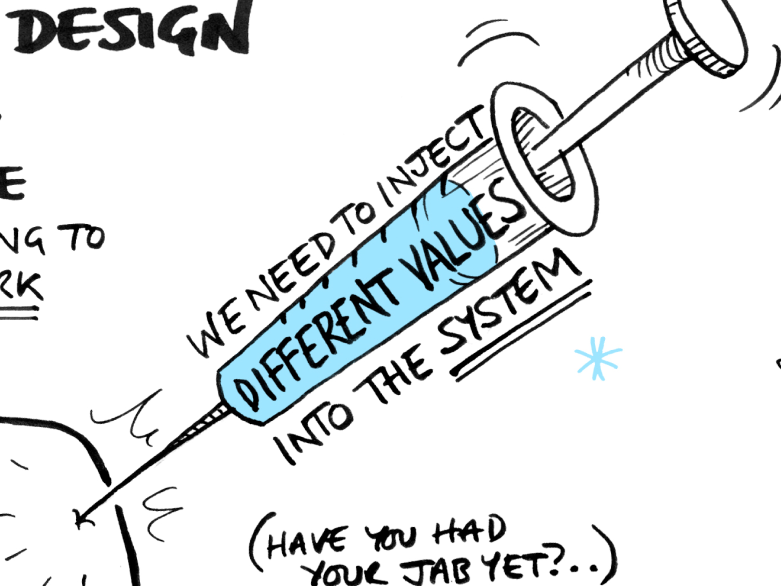 DESIGN
E
NG TO
RK
WE NEED TO INJECT
DIFFERENT VALUES
INTO THE SYSTEM
(HAVE YOU HAD
YOUR JAB YET?..)